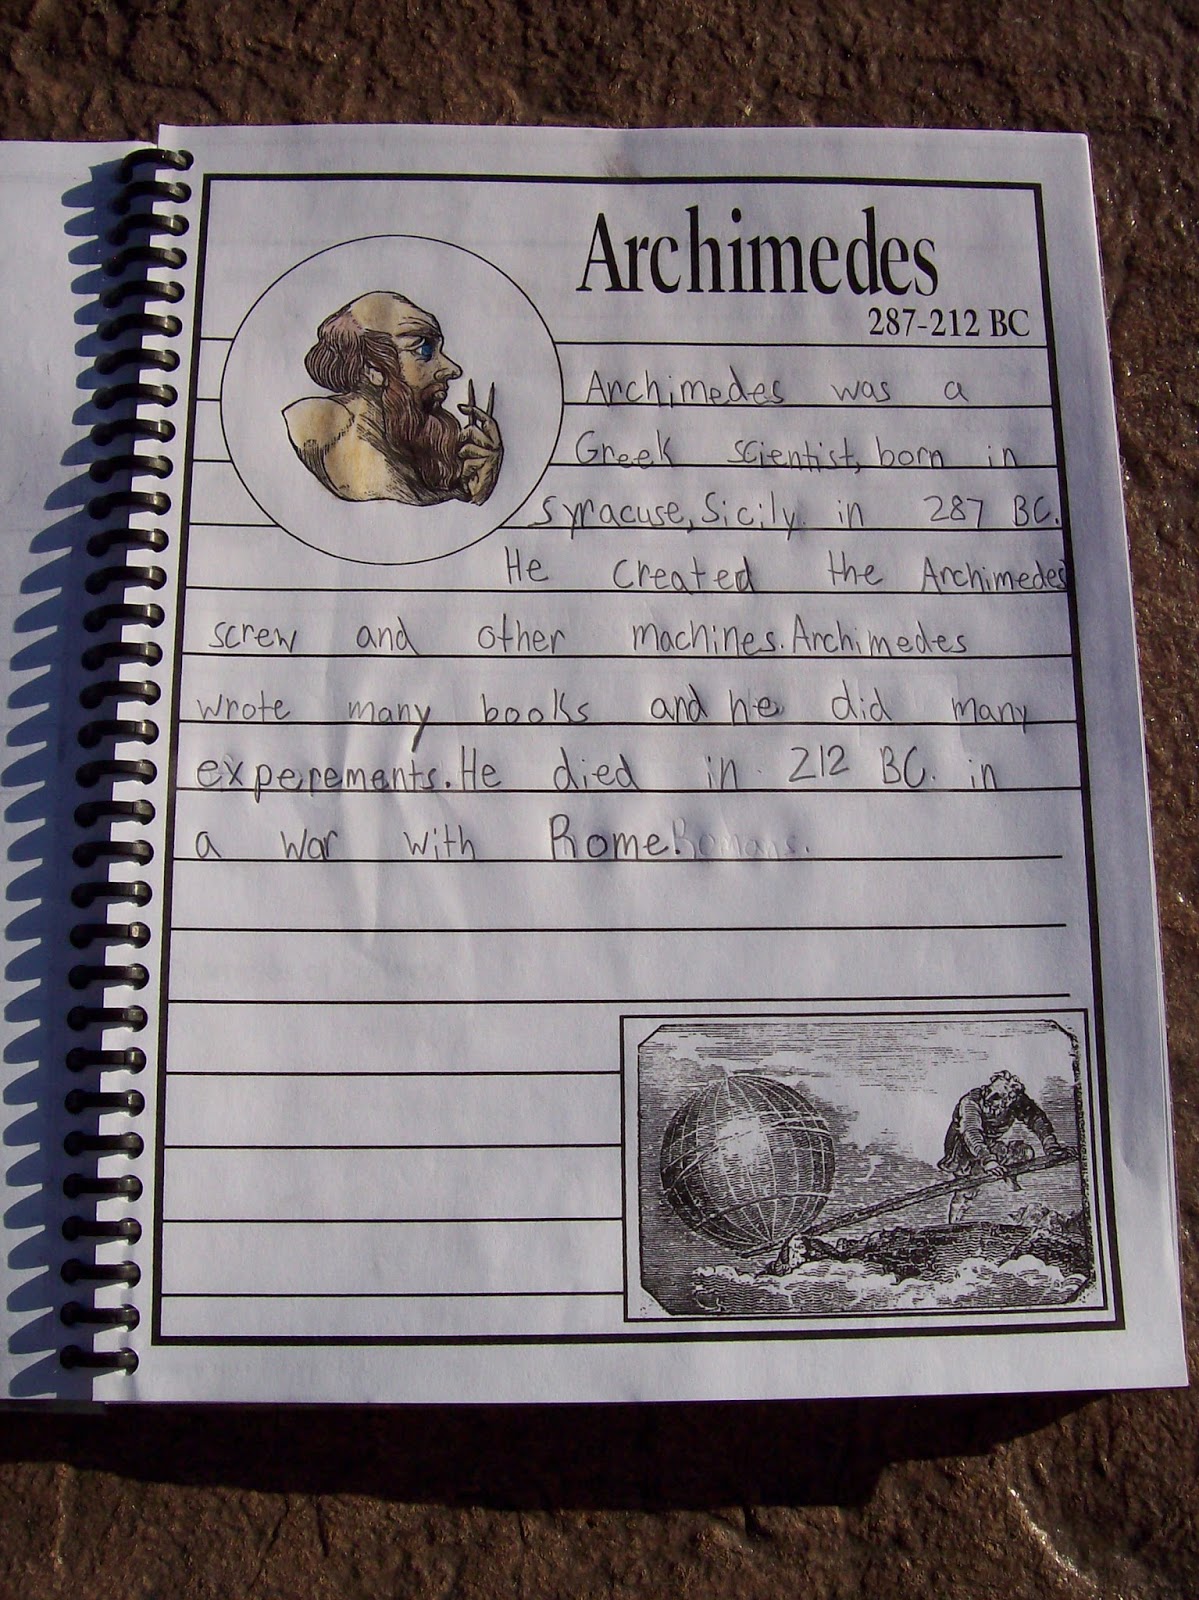 Archimedes
287-212 BC
Archimedes was a
Greek scientist, born in
Syracuse, Sicily. in 287 BC.
He created the Archimedes
screw and other machines. Archimedes
wrote many books and he did many
experements. He died in 212 BC. in
a war with Rome. Romans.